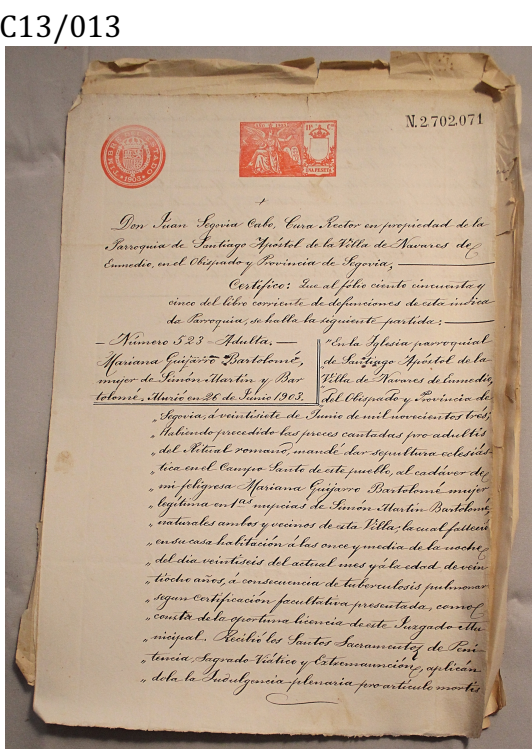 C13/013
TIMBRE DEL ESTADO
1903
N.2.702.071
UNA PESETA
Don Juan Segovia Cabo, Cura Rector en propiedad de la
Parroquia de Santiago Apóstol de la Villa de Navares de
Enmedio, en el Obispado y Provincia de Segovia,
Certifico: Que al fólio ciento cincuenta y
cinco del libro corriente de defunciones de esta indica
da Parroquia, se halla la siguiente partida:
- Número 523 - Adulta. -
Mariana Guijarro Bartolomé,
mujer de Simón Martin y Bar
tolome. Murió en 26 de Junio 1903.
"En la Iglesia parroquial
de Santiago Apóstol de la
Villa de Navares de Enmedio,
del Obispado y Provincia de
Segovia, á veintisiete de Junio de mil novecientos tres;
" Habiendo precedido las preces cantadas pro adultis
" del Ritual romano, mandé dar sepultura eclesiás-
" tica en el Campo Santo de este pueblo, al cadáver de
" mi feligresa Mariana Guijarro Bartolomé mujer
" legítima en 1as nupcias de Simon Martin Bartolomé,
" naturales ambos y vecinos de esta Villa; la cual falleció
" en su casa habitación á las once y media de la noche
" del dia veintiseis del actual mes y á la edad de vein
" tiocho años, á consecuencia de tuberculosis pulmonar
" segun certificación facultativa presentada, como
" consta de la oportuna licencia de este Juzgado Mu
" nicipal. Recibió los Santos Sacramentos de Peni
" tencia, Sagrado Viático y Extremaunción, aplicán
" dola la Indulgencia plenaria pro artículo mortis